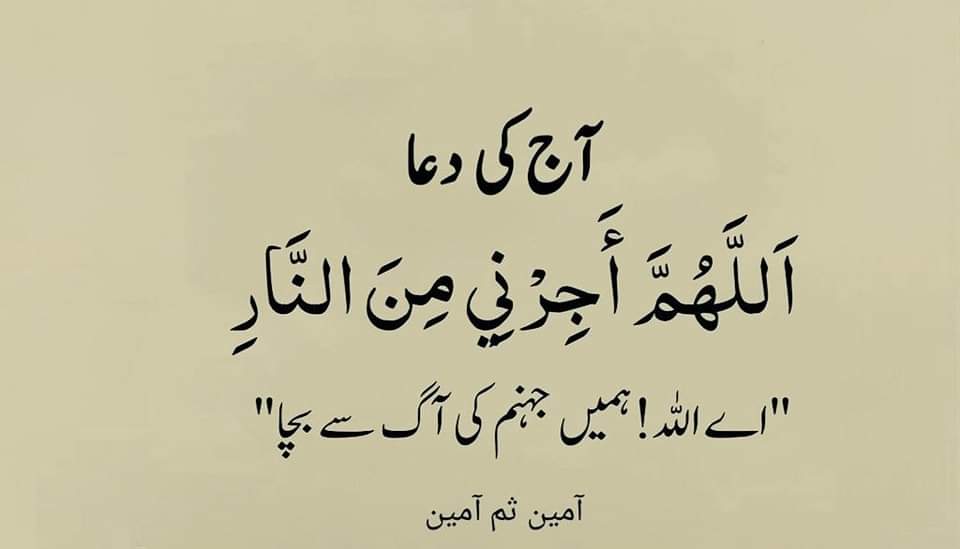 آج کی دعا
اَللَّهُمَّ أَجِرْنِي مِنَ النَّارِ
"اے اللہ! ہمیں جہنم کی آگ سے بچا"
آمین ثم آمین